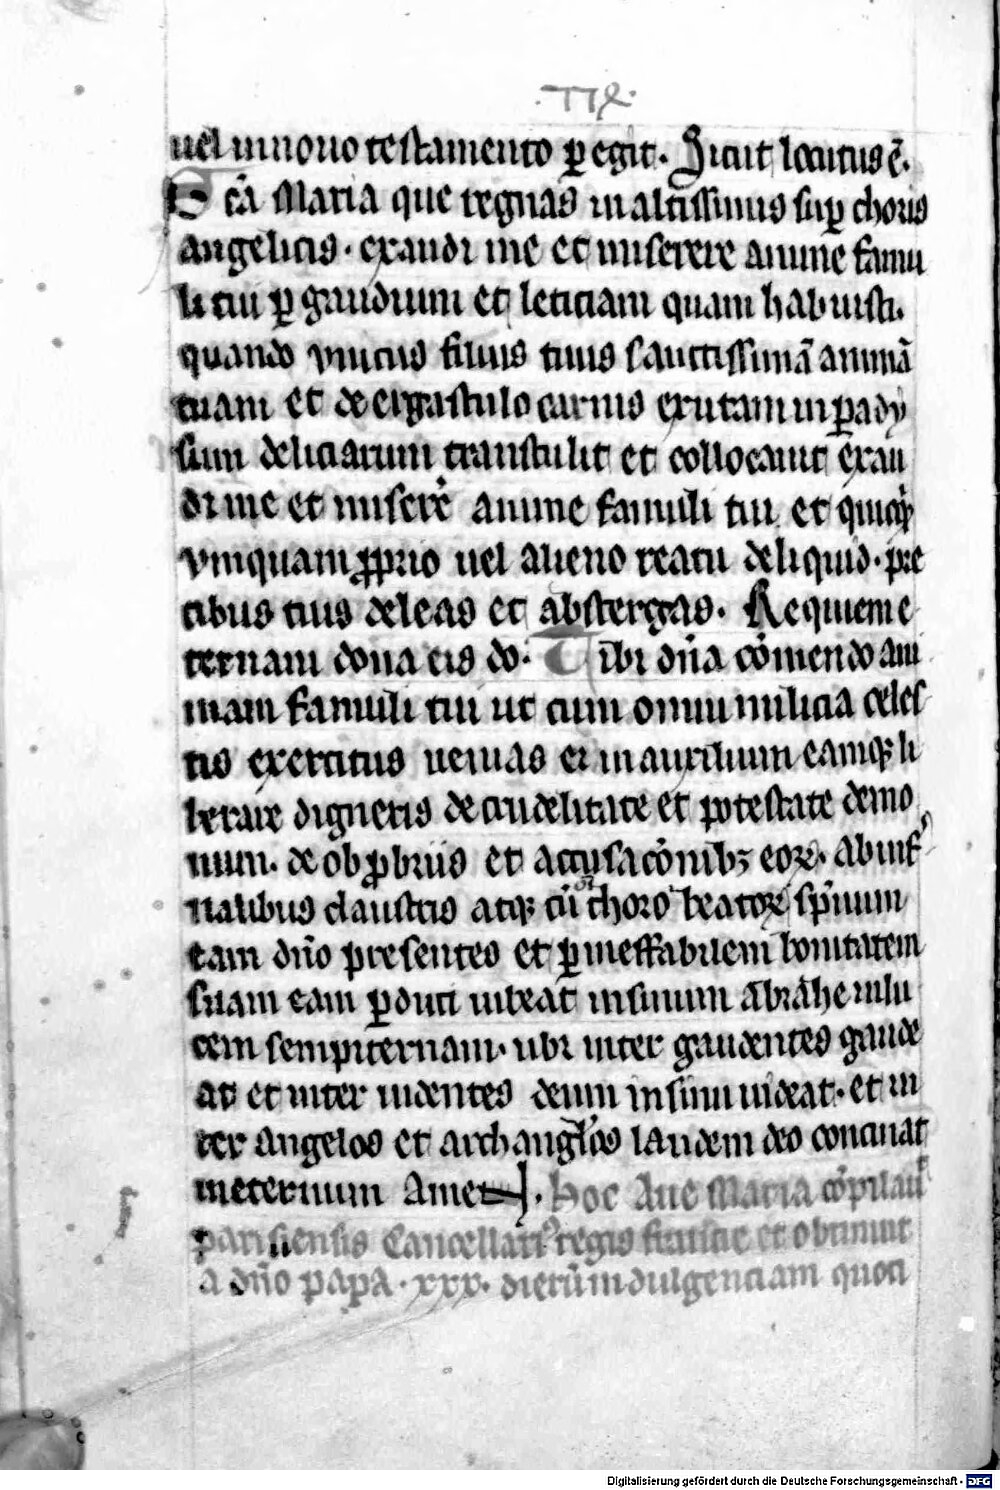 uel in nouo testamento ꝑegit. Sicut locutus ē.
Scā Maria que regnas in altissimis suꝑ choris
angelicis. exaudi me et miserere anime famu
li tui ꝑ gaudium et leticiam quam habuisti.
quando vnicus filius tuus sanctissimā animā
tuam et de ergastulo carnis exutam in parady
sum deliciarum transtulit et collocauit exau
di me et miserere anime famuli tui et quicqͥd
vmquam ꝓprio uel alieno reatu deliquid. pre
cibus tuis deleas et abstergas. Requiem e
ternam dona eis do. Tibi dn̄a cōmendo ani
mam famuli tui ut cum omni milicia celes
tis exercitus uenias ei in auxilium eamqꝫ li
berare digneris de crudelitate et potestate demo
num. de obꝓbriis et accusacōnibꝫ eoꝝ. ab infer
nalibus claustris atqꝫ cū choro beatoꝝ sp̄iuum
eam dn̄o presentes et ꝑ ineffabilem bonitatem
suam eam ꝑduci iubeat in sinum abrahe in lu
cem sempiternam. ubi inter gaudentes gaude
at et inter uidentes deum in sinu uideat. et in
ter angelos et archangl̄os laudem deo concinat
in eternum Amen. Hoc Aue Maria cōpilauit
parisiensis Cancellariꝰ regis francie et obtinuit
a dn̄o papa. xxx. dierū indulgenciam quoci
Digitalisierung gefördert durch die Deutsche Forschungsgemeinschaft - DFG